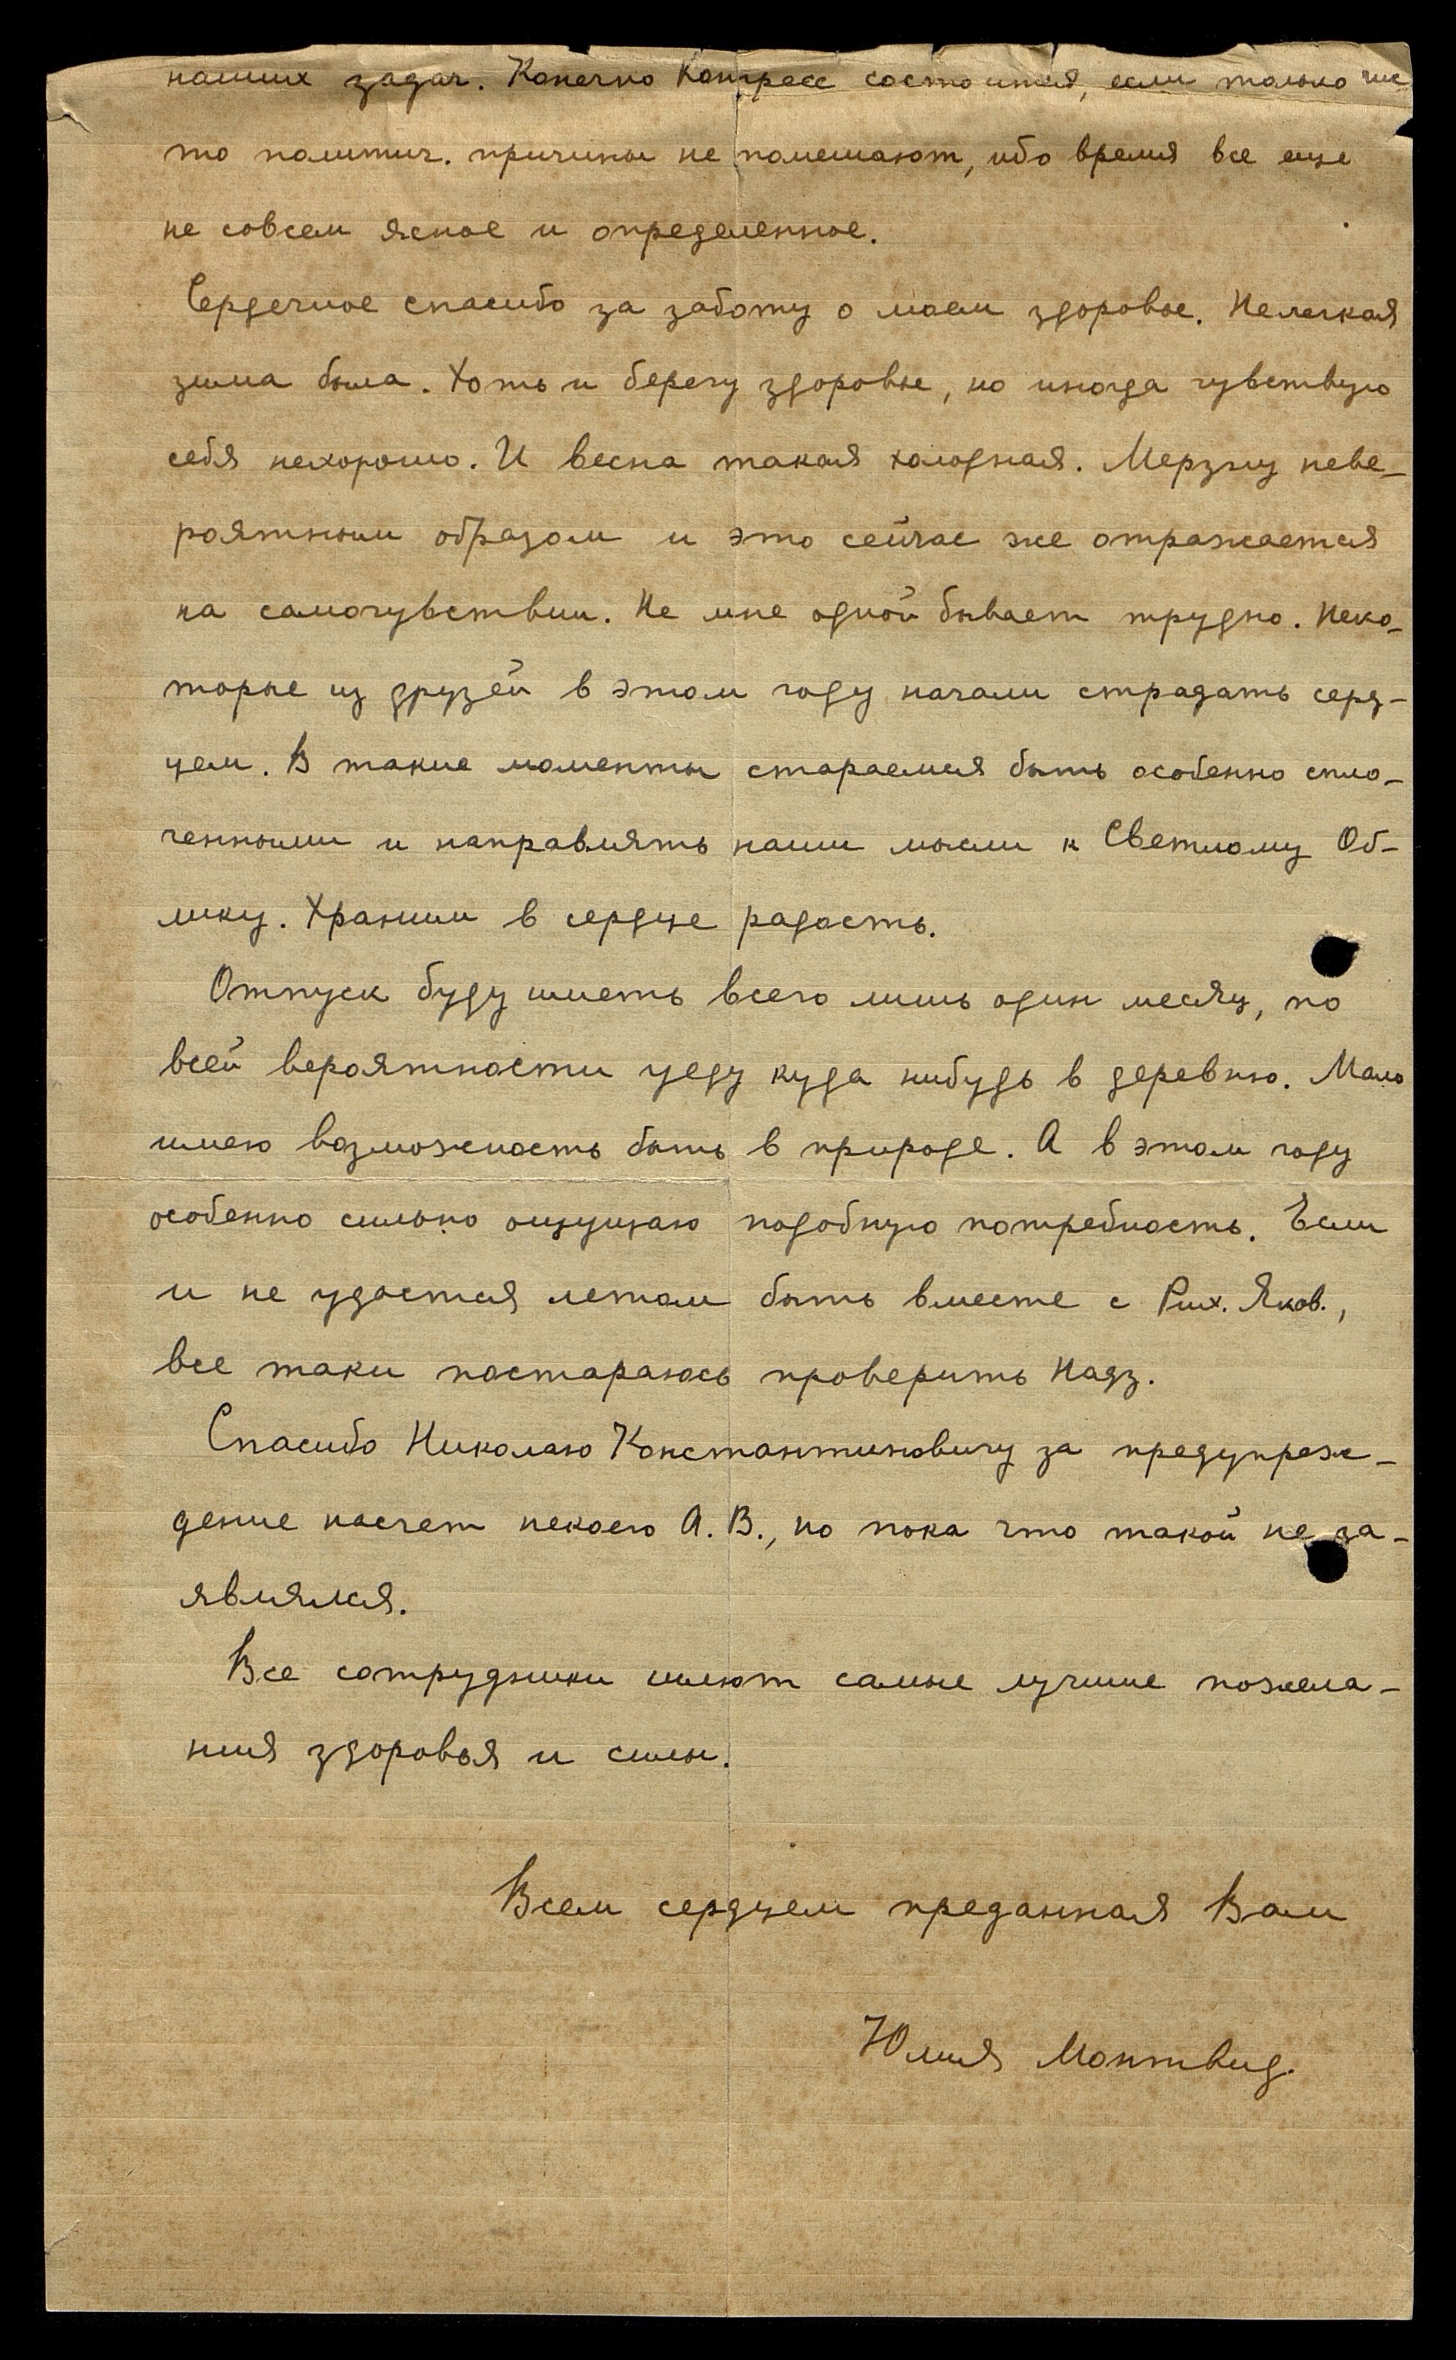 наших задач. Конечно Конгресс состоится, если только
то политич. причины не помешают, ибо время все еще
не совсем ясное и определенное.
Сердечное спасибо за заботу о моем здоровье. Нелегкая
зима была. Хоть и берегу здоровье, но иногда чувствую
себя нехорошо. И весна такая холодная. Мерзну неве-
роятным образом и это сейчас же отражается
на самочувствии. Не мне одной бывает трудно. Неко-
торые из друзей в этом году начали страдать серд-
цем. В такие моменты стараемся быть особенно спло-
ченными и направлять наши мысли к Светлому Об-
лику. Храним в сердце радость.
Отпуск буду иметь всего лишь один месяц, по
всей вероятности уеду куда нибудь в деревню. Мало
имею возможность быть в природе. А в этом году
особенно сильно ощущаю подобную потребность. Если
и не удастся летом быть вместе с Рих. Яков.,
все таки постараюсь проверить Надз.
Спасибо Николаю Константиновичу за предупреж-
дение насчет некоего А. В., но пока что такой не за-
являлся.
Все сотрудники шлют самые лучшие пожела-
ния здоровья и силы.
Всем сердцем преданная Вам
Юлия Монтвид.